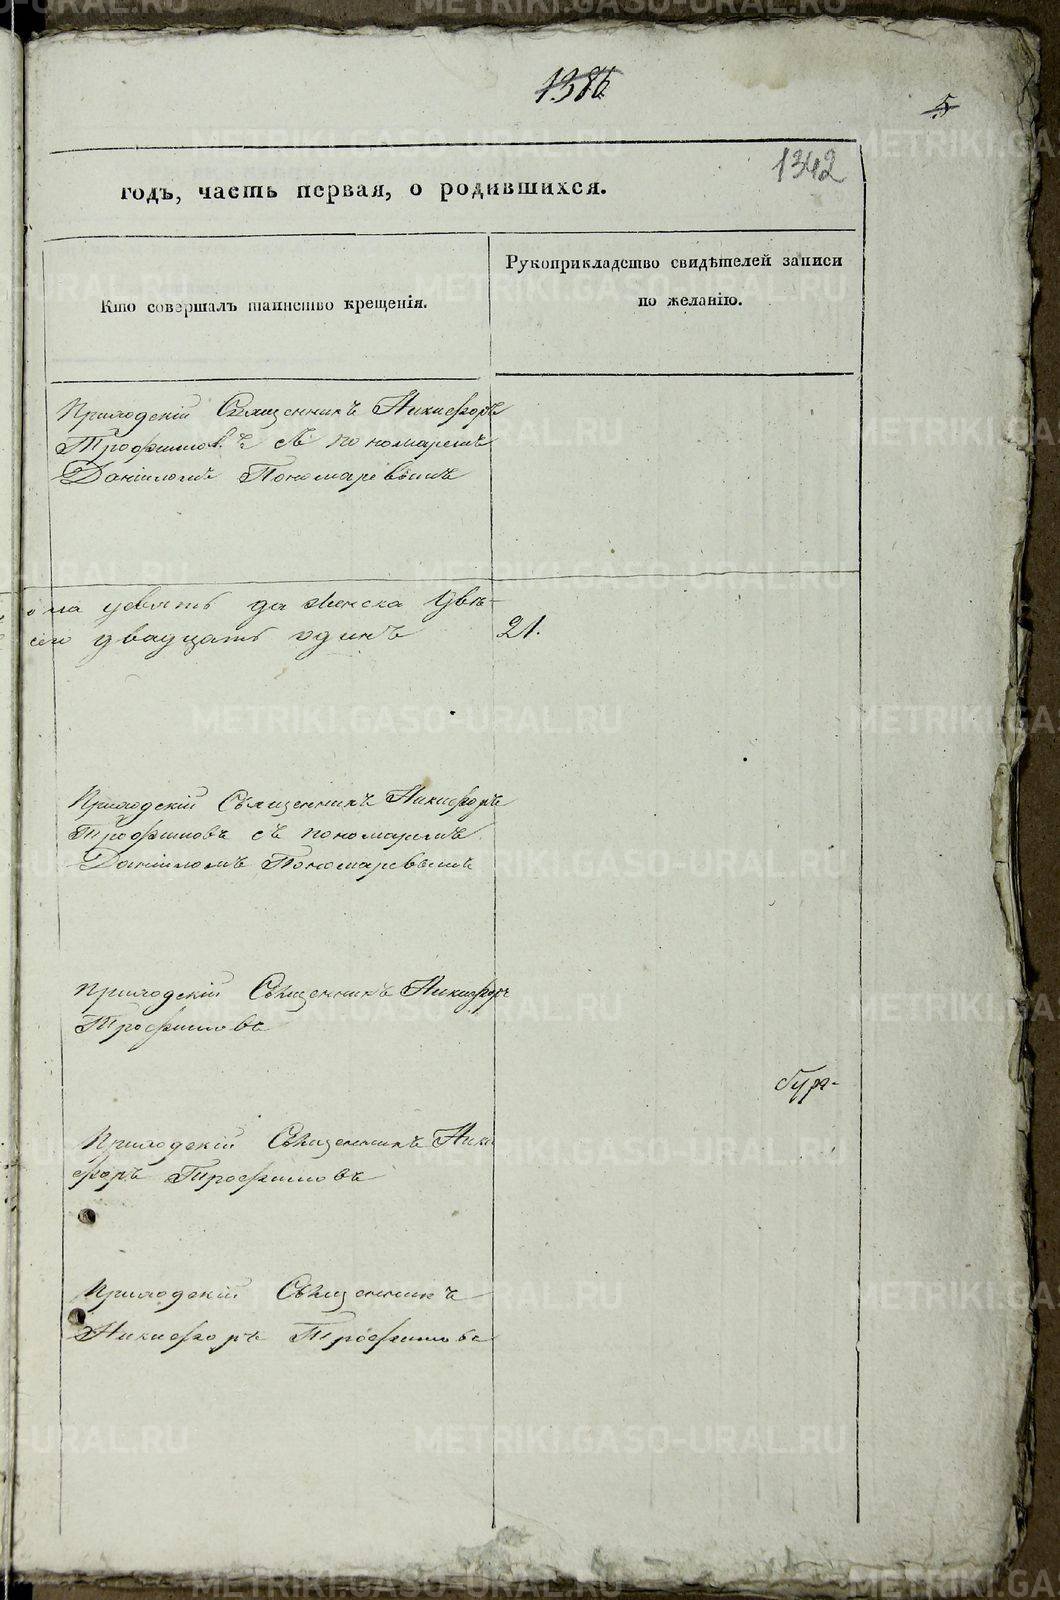 1386
5
1342
годъ, часть первая, о родившихся.
Кто совершалъ таинство крещенія.
Рукоприкладство свидѣтелей записи
по желанію.
Приходскій Священникъ Никифоръ
Трофимовъ съ пономаремъ
Даніиломъ Пономаревымъ
девять да женска двѣ-
двадцать одинъ 21.
Приходскій Священникъ Никифоръ
Трофимовъ съ пономаремъ
Даніиломъ Пономаревымъ
Приходскій Священникъ Никифоръ
Трофимовъ
бург-
Приходскій Священникъ Ники
форъ Трофимовъ
Приходскій Священникъ
Никифоръ Трофимовъ
METRIKI.GASO-URAL.RU